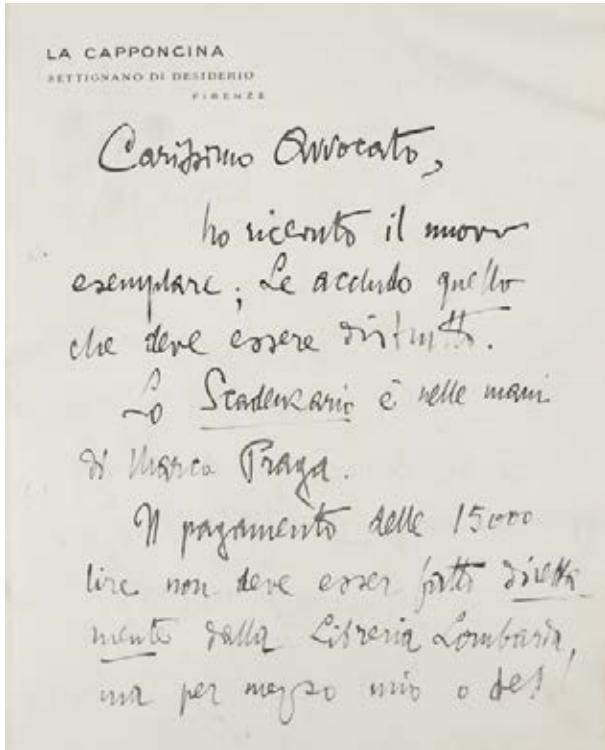 LA CAPPONCINA
SETTIGNANO DI DESIDERIO
FIRENZE
Carissimo Avvocato,
ho ricevuto il nuovo
esemplare; Le accludo quello
che deve essere distrutto.
Lo Scadenzario è nelle mani
di Marco Praga.
Il pagamento delle 15000
lire non deve esser fatto diretta-
mente dalla Libreria Lombarda,
ma per mezzo mio o del